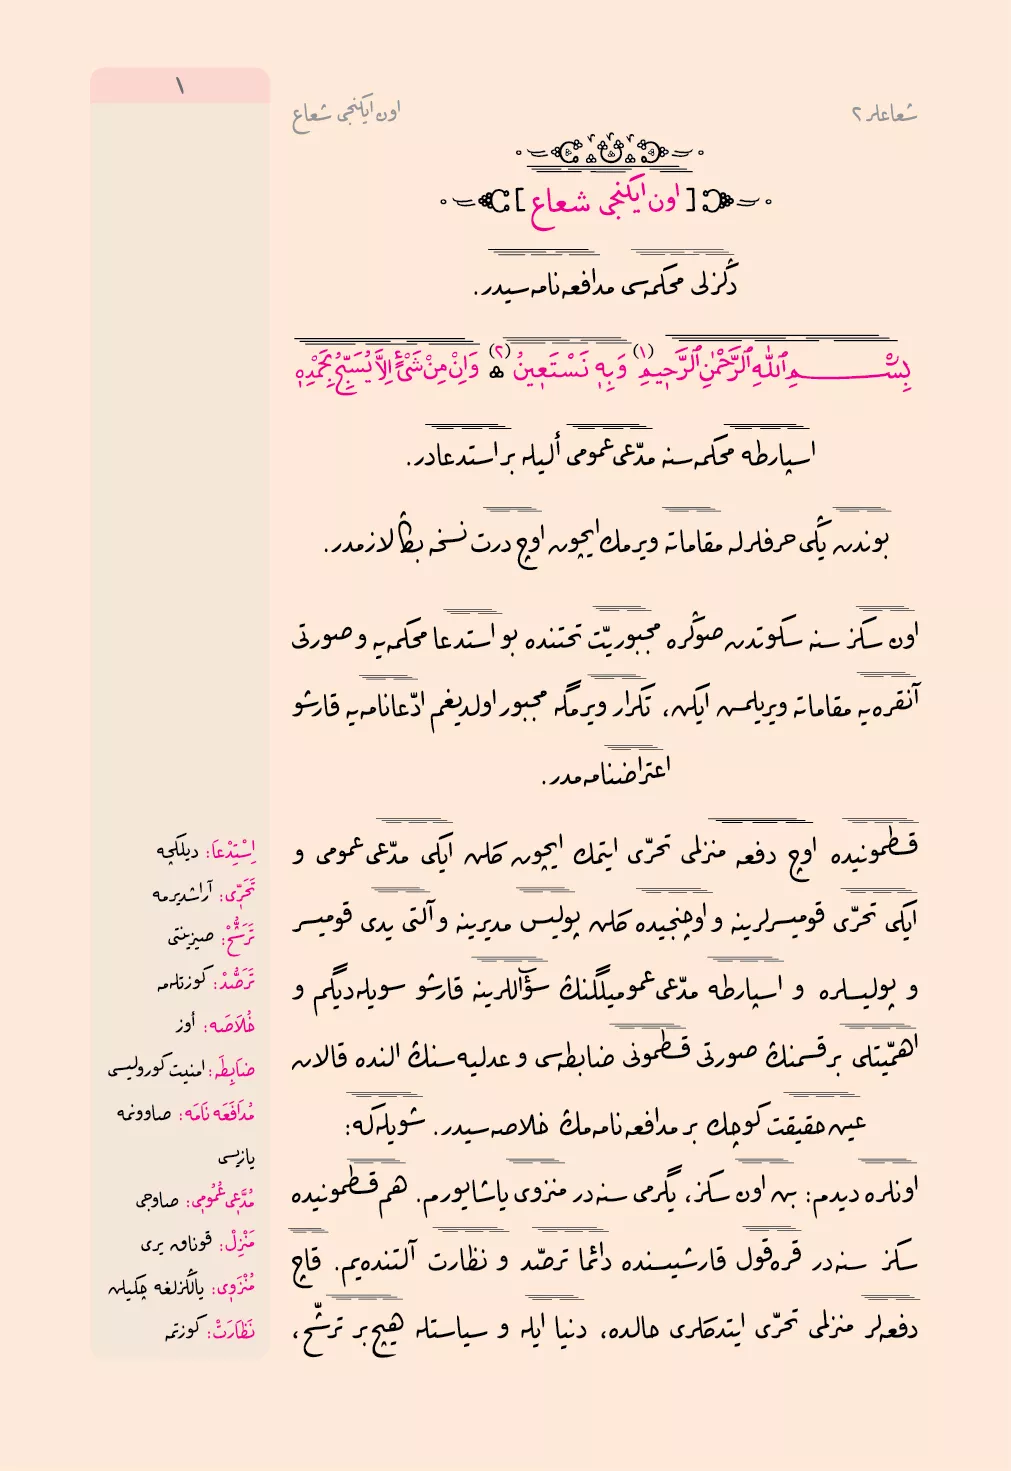 ١
شعاعلر ٢
اون ايكنجی شعاع
[اون ايكنجی شعاع]
دڭزلی محكمه‌سی مدافعه‌نامه‌سيدر.
بِسْمِ اللّٰهِ الرَّحْمٰنِ الرَّحٖيمِ (١) وَبِهٖ نَسْتَعٖينُ (٢) ❁ وَاِنْ مِنْ شَيْءٍ اِلَّا يُسَبِّحُ بِحَمْدِهٖ
اسپارطه محكمه‌سنه مدّعی عمومی أليله بر استدعادر.
بوندن يڭی حرفلرله مقاماته ويرمك ايچون اوچ درت نسخه بڭا لازمدر.
اون سكز سنه سكوتدن صوڭره مجبوريّت تحتنده بو استدعا محكمه‌يه و صورتی
آنقره‌يه مقاماته ويريلمس ايكن، تكرار ويرمگه مجبور اولديغم ادّعانامه‌يه قارشو
اعتراضنامه‌مدر.
قسطمونيده اوچ دفعه منزلمی تحرّی ايتمك ايچون كلن ايكی مدّعی عمومی و
ايكی تحرّی قوميسرلرينه و اوچنجيده كلن پوليس مديرينه و آلتی يدی قوميسر
و پوليسلره و اسپارطه مدّعی عموميلگنڭ سؤاللرينه قارشو سويله‌ديگم و
اهمّيتلی بر قسمنڭ صورتی قسطمونی ضابطه‌سی و عدليه‌سنڭ النده قالان
عين حقيقت كوچك بر مدافعه‌نامه‌مڭ خلاصه‌سيدر. شويله‌كه:
اونلره ديدم: بن اون سكز، يگرمی سنه‌در منزوی ياشايورم. هم قسطمونيده
سكز سنه‌در قره‌قول قارشيسنده دائما ترصّد و نظارت آلتنده‌يم. قاچ
دفعه‌لر منزلمی تحرّی ايتدكلری حالده، دنيا ايله و سياستله هيچ بر ترشّح،
اِسْتِدْعَا: ديلكچه
تَحَرّٖی: آراشديرمه
تَرَشُّحْ: صيزينتی
تَرَصُّدْ: كوزتله‌مه
خُلَاصَه: أوز
ضَابِطَه: امنيت كوروليسی
مُدَافَعَه نَامَه: صاوونمه
يازيسی
مُدَّعِی عُمُومٖی: صاوجی
مَنْزِلْ: قوناق يری
مُنْزَوٖی: يالڭزلغه چكيلن
نَظَارَتْ: كوزتمه